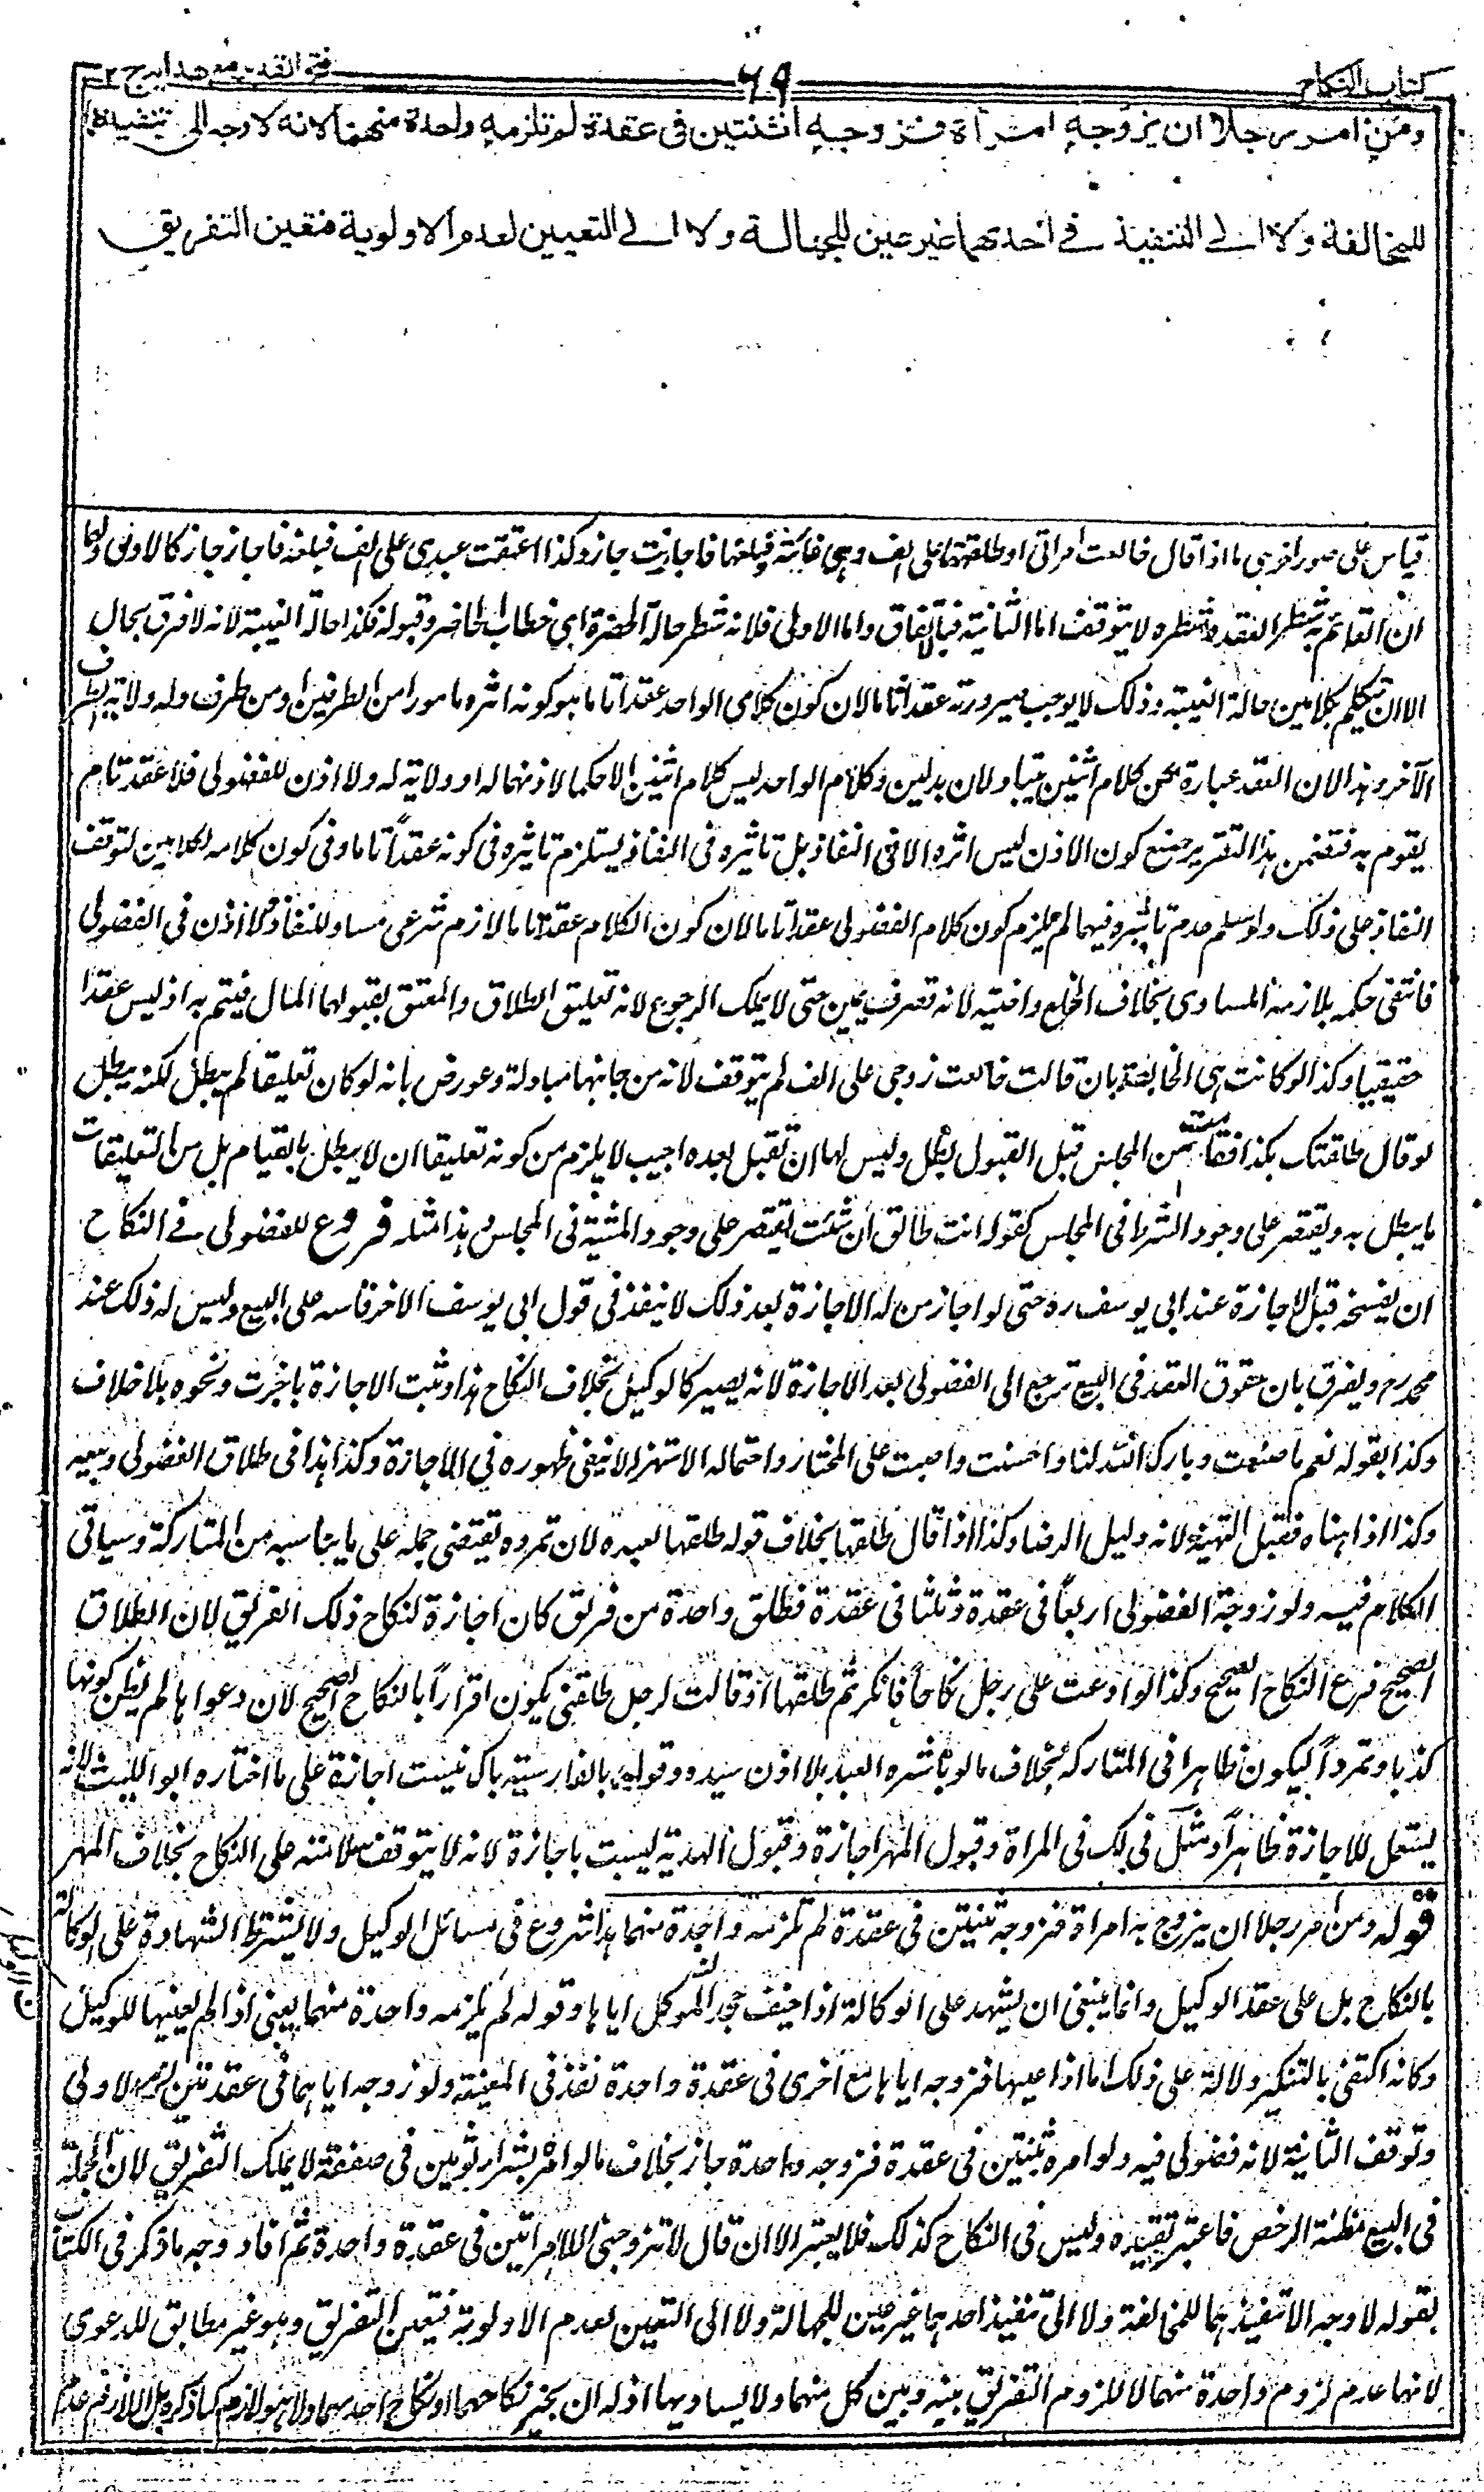 كتاب النكاح
٦٩
فتح القدير مع هدايه ج ٢
ومن امر رجلا ان يزوجه امرأة فزوجه اثنتين فى عقدة لم تلزمه واحدة منهما لانه لا وجه الى تنفيذهما
للمخالفة ولا الى التنفيذ فى احدهما غير عين للجهالة ولا الى التعيين لعدم الاولوية فتعين التفريق
قياس على صور اخرى ما اذا قال خالعت امراتى او طلقتها على الف وهى غائبة فبلغها فاجازت جاز وكذا اعتقت عبدى على الف فبلغه فاجاز جاز كالاولى ولهما
ان القائم به شطر العقد وشطره لا يتوقف اما الثانية فبالاتفاق واما الاولى فلانه شطر حالة الحضرة اى خطاب الحاضر وقبوله فكذا حالة الغيبة لانه لا فرق بحال
الا ان تكلم بكلامين حالة الغيبة وذلك لا يوجب صيرورته عقدا تاما لان كون كلامى الواحد عقدا تاما هو كونه اثره مامورا من الطرفين او من طرف وله ولاية الطرف
الآخر وهذا لان العقد عبارة عن كلام اثنين يتبادلان بدلين وكلام الواحد ليس كلام اثنين الا حكما لاذنهما له او ولاية له ولا اذن للفضولى فلا عقد تام
يقوم به فتضمن هذا التقرير منع كون الاذن ليس اثره الا فى النفاذ بل تاثيره فى النفاذ يستلزم تاثيره فى كونه عقدا تاما وفى كون كلامه كلامين لتوقف
النفاذ على ذلك ولو سلم عدم تاثيره فيهما لم يلزم كون كلام الفضولى عقدا تاما لان كون الكلام عقدا تاما لازم شرعى مساو للنفاذ ولا اذن فى الفضولى
فانتفى حكمه بلازمه المساوى بخلاف الخلع واختيه لانه تصرف يمين حتى لا يملك الرجوع لانه تعليق الطلاق والعتق بقبولهما المال فيتم به اذ ليس عقدا
حقيقيا وكذا لو كانت هى الخالعة بان قالت خالعت زوجى على الف لم يتوقف لانه من جانبها مبادلة وعورض بانه لو كان تعليقا لم يبطل لكنه يبطل
لو قال طلقتك بكذا فقامت من المجلس قبل القبول بطل وليس لها ان تقبل بعده اجيب لا يلزم من كونه تعليقا ان لا يبطل بالقيام بل من التعليقات
ما يبطل به ويقتصر على وجود الشرط فى المجلس كقوله انت طالق ان شئت يقتصر على وجود المشية فى المجلس وهذا مثله فروع للفضولى فى النكاح
ان يفسخه قبل الاجازة عند ابى يوسف ره حتى لو اجاز من له الاجازة بعد ذلك لا ينفذ فى قول ابى يوسف الاخر قاسه على البيع وليس له ذلك عند
محمد رح ويفرق بان حقوق العقد فى البيع ترجع الى الفضولى بعد الاجازة لانه يصير كالوكيل بخلاف النكاح هذا وتثبت الاجازة باجزت ونحوه بلا خلاف
وكذا بقوله نعم ما صنعت وبارك الله لنا واحسنت واصبت على المختار واحتماله الاستهزاء لا ينفى ظهوره فى الاجازة وكذا هذا فى طلاق الفضولى وبيعه
وكذا اذا هناه فقبل التهنية لانه دليل الرضا وكذا اذا قال طلقها بخلاف قوله طلقها لعبده لان تمرده يقتضى حمله على ما يناسبه من المتاركة وسياتى
الكلام فيه ولو زوجه الفضولى اربعا فى عقدة وثلثا فى عقدة فطلق واحدة من فريق كان اجازة لنكاح ذلك الفريق لان الطلاق
الصحيح فرع النكاح الصحيح وكذا لو ادعت على رجل نكاحا فانكر ثم طلقها او قالت لرجل طلقنى يكون اقرارا بالنكاح الصحيح لان دعواها لم يظن كونها
كذبا وتمردا ليكون ظاهرا فى المتاركة بخلاف ما لو باشره العبد بلا اذن سيده وقوله بالفارسية باك نيست اجازة على ما اختاره ابو الليث لانه
يستعمل للاجازة ظاهرا ومثل ذلك فى المراة وقبول المهر اجازة وقبول الهدية ليست باجازة لانه لا يتوقف على النكاح بخلاف المهر
قوله ومن امر رجلا ان يزوج به امراة فزوجه ثنتين فى عقدة لم تلزمه واحدة منهما هذا شروع فى مسائل الوكيل ولا يشترط الشهادة على الوكالة
بالنكاح بل على عقد الوكيل وانما ينبغى ان يشهد على الوكالة اذا خيف جحد الموكل اياها وقوله لم يلزمه واحدة منهما يعنى اذا لم يعينها للوكيل
وكانه اكتفى بالتنكير دلالة على ذلك اما اذا عينها فزوجه اياها مع اخرى فى عقدة واحدة نفذ فى المعينة ولو زوجه اياهما فى عقدتين لزمه الاولى
وتوقف الثانية لانه فضولى فيه ولو امره بثنتين فى عقدة فزوجه واحدة جاز بخلاف ما لو امره بشراء ثوبين فى صفقة لا يملك التفريق لان الجملة
فى البيع مظنة الرخص فاعتبر تقييده وليس فى النكاح كذلك فلا يعتبر الا ان قال لا تزوجنى الا امراتين فى عقدة واحدة ثم افاد وجه ما ذكر فى الكتاب
بقوله لا وجه الا تنفيذهما للمخالفة ولا الى تنفيذ احدهما غير عين للجهالة ولا الى التعيين لعدم الاولوية فيتعين التفريق وهو غير مطابق للدعوى
لانها عدم لزوم واحدة منهما لا للزوم التفريق بينه وبين كل منهما ولا يساويها اذ له ان يجيز نكاحهما او نكاح احدهما ولا هو لازم كما ذكره بل اللازم عدم